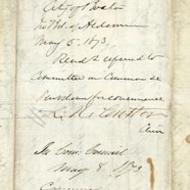 City of Boston
In Bd. of Aldermen
May 5. 1873,
Read & referred to
Committee on Common &c
for conveyance
In Com. Council
May 8 1873
Concurred